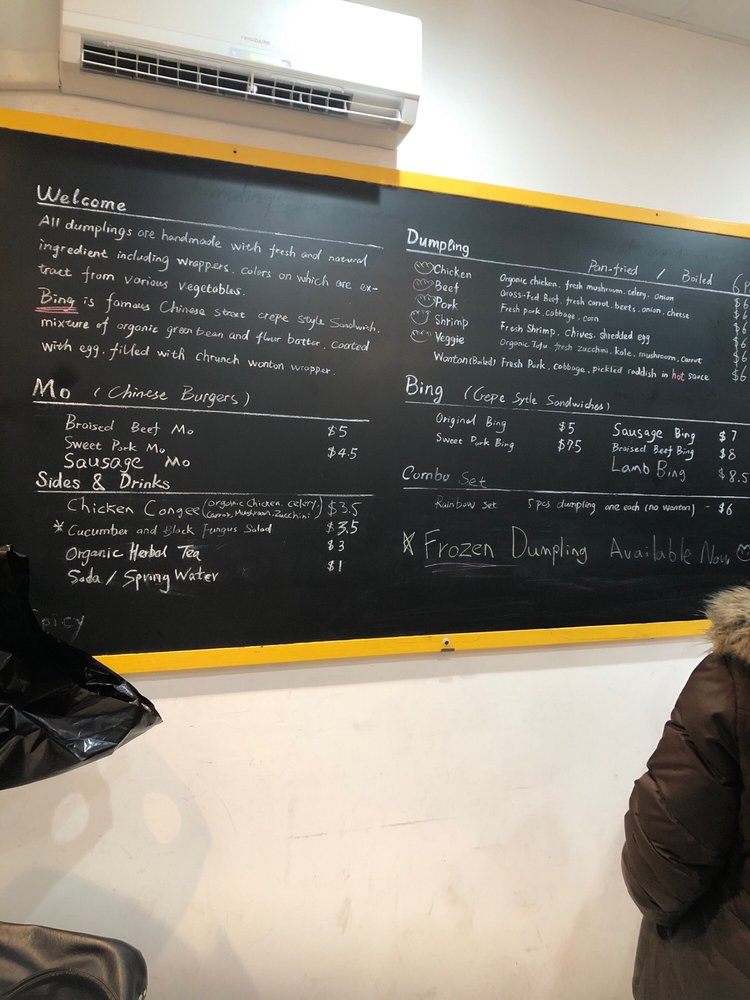 FRIGIDAIRE
Welcome
All dumplings are handmade with fresh and natural
ingredient including wrappers. colors on which are ex-
tract from various vegetables.
Bing is famous Chinese street crepe style Sandwich.
mixture of organic green bean and flour batter. coated
with egg. filled with chrunch wonton wrapper.
Mo ( Chinese Burgers )
Braised Beef Mo $5
Sweet Pork Mo $4.5
Sausage Mo
Sides & Drinks
Chicken Congee (organic Chicken. celery. carrot, Mushroom. Zucchini) $3.5
* Cucumber and Black Fungus Salad $3.5
Organic Herbal Tea $3
Soda / Spring Water $1
Spicy
Dumpling
Pan-fried / Boiled 6
Chicken Organic chicken. fresh mushroom. celery. onion $6
Beef Grass-Fed Beef. fresh carrot. beets. onion. cheese $6
Pork Fresh pork. cabbage. corn $6
Shrimp Fresh Shrimp. Chives. shredded egg $6
Veggie Organic Tofu. fresh zucchini, kale, mushroom, carrot $6
Wonton (Boiled) Fresh Pork. cabbage, pickled raddish in hot sauce $6
Bing (Crepe Sytle Sandwiches)
Original Bing $5 Sausage Bing $7
Sweet Pork Bing $7.5 Braised Beef Bing $8
Lamb Bing $8.5
Combo Set
Rainbow Set 5 pcs dumpling one each (no wonton) - $6
Frozen Dumpling Available Now